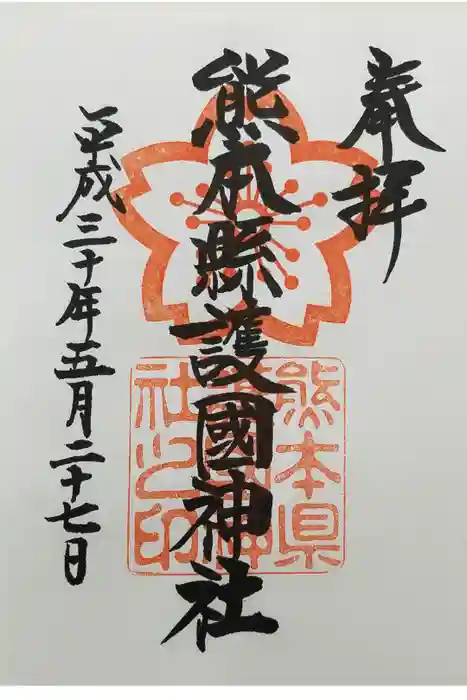 奉拝
熊本縣護國神社
平成三十年五月二十七日
熊本県
護國神
社之印